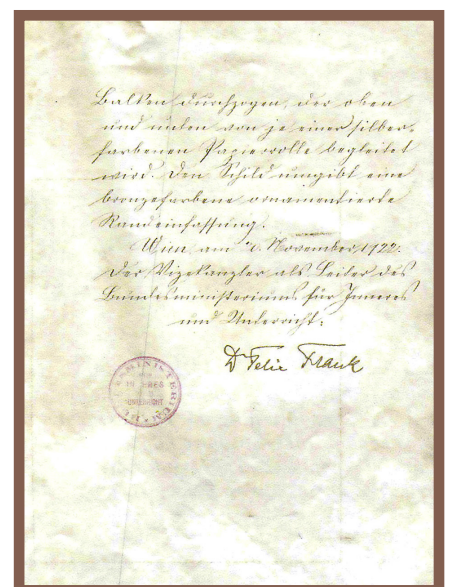 Balken durchzogen, der oben
und unten von je einer silber-
farbenen Papierrolle begleitet
wird. Den Schild umgibt eine
bronzefarbene ornamentierte
Randeinfassung.
Wien, am November 1922.
Der Vizekanzler als Leiter des
Bundesministeriums für Inneres
und Unterricht:
Dr Felix Frank
BUNDESMINISTERIUM
INNERES
UNTERRICHT